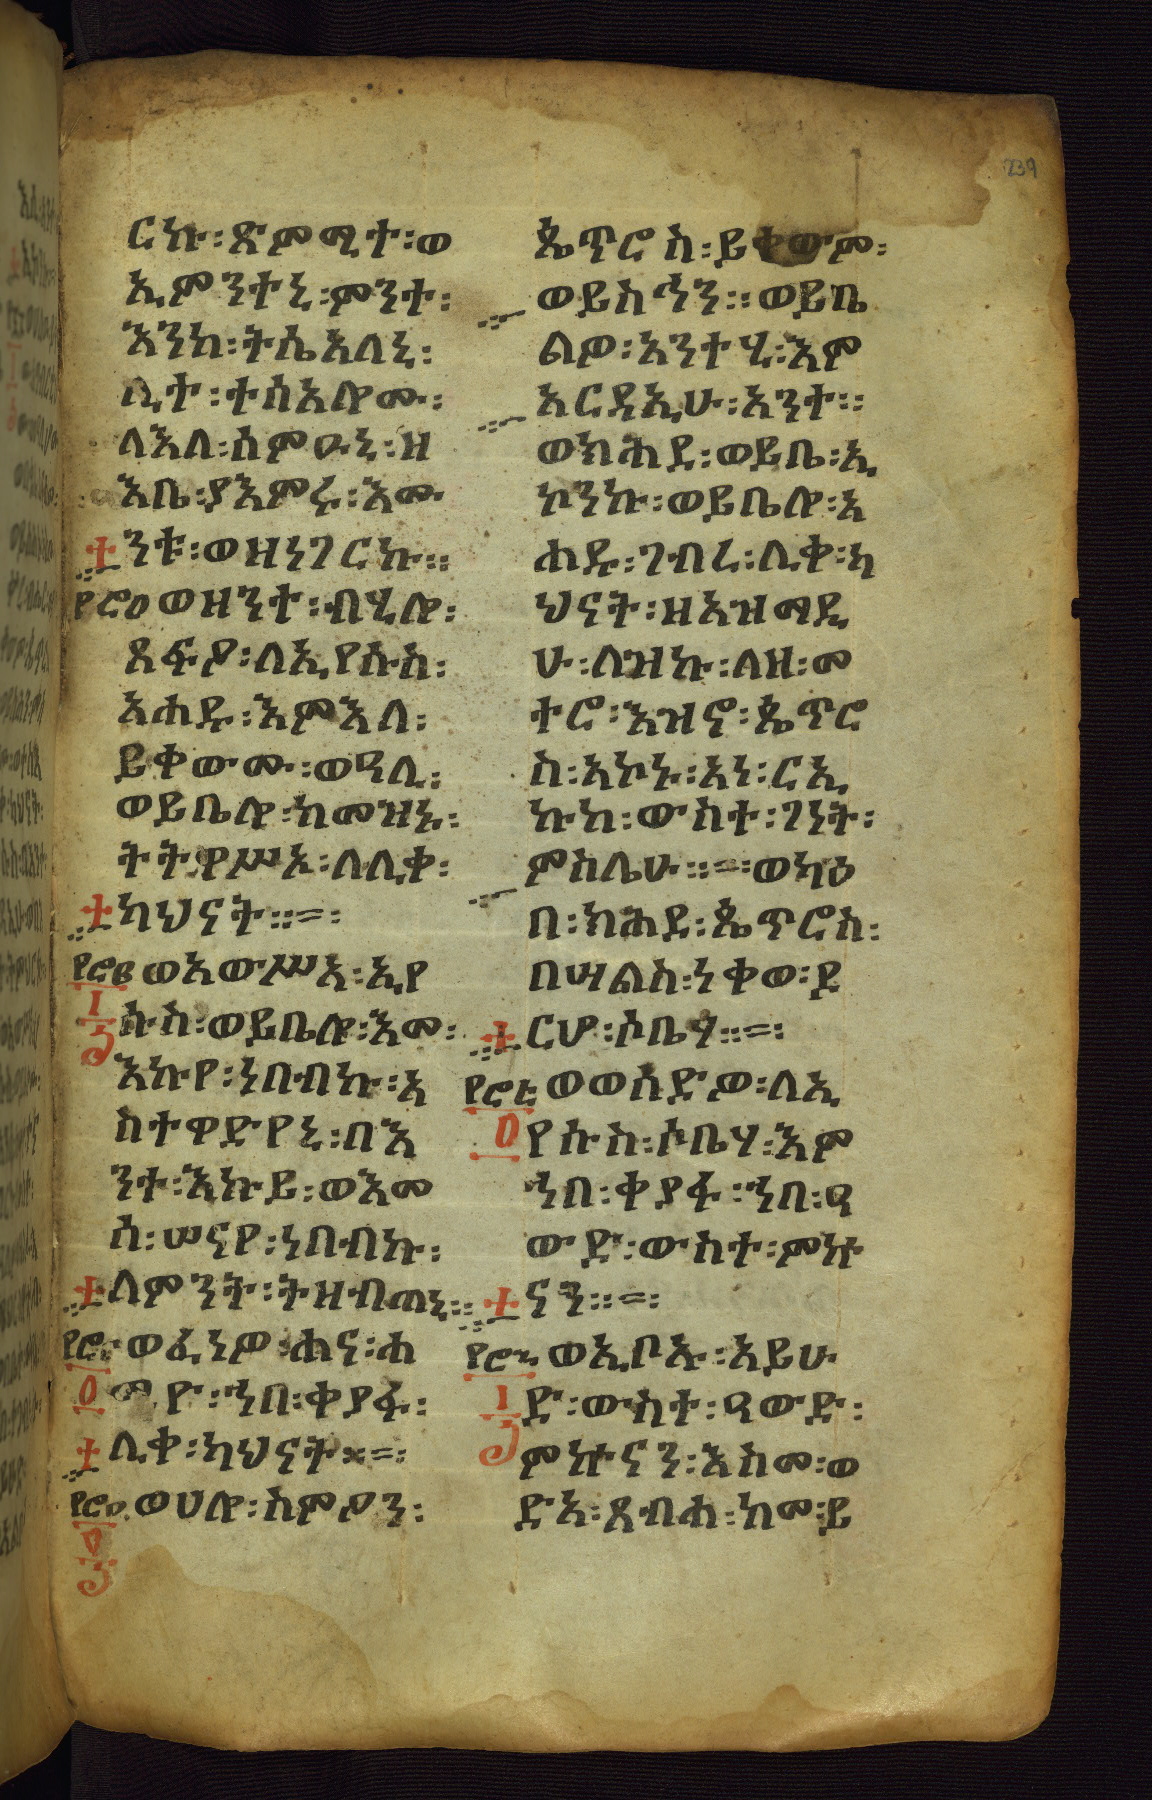 239
ርኩ፡ጽምሚተ፡ወ
ኢምንተኒ፡ምንተ፡
እንከ፡ትሴአለኒ፡
ሊተ፡ተስእሎሙ፡
ለእለ፡ሰምዑኒ፡ዘ
እቤ፡ያአምሩ፡እሙ
ንቱ፡ወዘነገርኩ።
ወዘንተ፡ብሂሎ፡
ጸፍዖ፡ለኢየሱስ፡
አሐዱ፡እምእለ፡
ይቀውሙ፡ወዓሊ፡
ወይቤሎ፡ከመዝኑ፡
ትትዋሥአ፡ለሊቀ፡
ካህናት።=፡
ወአውሥአ፡ኢየ
ሱስ፡ወይቤሎ፡እመ፡
እኩየ፡ነበብኩ፡አ
ስተዋድየኒ፡በእ
ንተ፡እኩይ፡ወእመ
ሰ፡ሠናየ፡ነበብኩ፡
ለምንት፡ትዘብጠኒ።
ወፈነዎ፡ሐና፡ሐ
ሙዮ፡ኀበ፡ቀያፋ፡
ሊቀ፡ካህናት፨=፡
ወሀሎ፡ስምዖን፡
ጴጥሮስ፡ይቀውም፡
ወይስኅን።ወይቤ
ልዎ፡አንተሂ፡እም
አርዳኢሁ፡አንተ።
ወክሕደ፡ወይቤ፡ኢ
ኮንኩ፡ወይቤሎ፡አ
ሐዱ፡ገብረ፡ሊቀ፡ካ
ህናት፡ዘአዝማዲ
ሁ፡ለዝኩ፡ለዘ፡መ
ተሮ፡እዝኖ፡ጴጥሮ
ስ፡አኮኑ፡አነ፡ርኢ
ኩከ፡ውስተ፡ገነት፡
ምስሌሁ።=፡ወካዕ
በ፡ክሕደ፡ጴጥሮስ፡
በሣልስ፡ነቀወ፡ዶ
ርሆ፡ሶቤሃ።=፡
ወወሰድዎ፡ለኢ
የሱስ፡ሶቤሃ፡እም
ኀበ፡ቀያፋ፡ኀበ፡ዓ
ውድ፡ውስተ፡ምኵ
ናን።=፡
ወኢቦኡ፡አይሁ
ድ፡ውስተ፡ዓውድ፡
ምኵናን፡እስመ፡ወ
ድአ፡ጸብሐ፡ከመ፡ይ